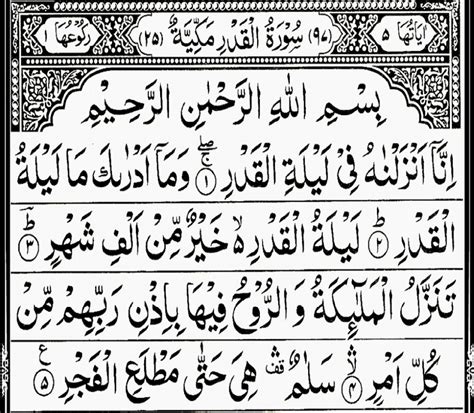 اٰیَاتُهَا ٥ (٩٧) سُوْرَةُ الْقَدْرِ مَكِّیَّةٌ (٢٥) رُكُوْعُهَا ١
بِسْمِ اللهِ الرَّحْمٰنِ الرَّحِیْمِ
اِنَّاۤ اَنْزَلْنٰهُ فِیْ لَیْلَةِ الْقَدْرِ ۚۖ ١ وَمَاۤ اَدْرٰىكَ مَا لَیْلَةُ
الْقَدْرِ ؕ ٢ لَیْلَةُ الْقَدْرِ ۙ۬ خَیْرٌ مِّنْ اَلْفِ شَهْرٍ ؕ ٣
تَنَزَّلُ الْمَلٰٓىِٕكَةُ وَ الرُّوْحُ فِیْهَا بِاِذْنِ رَبِّهِمْ مِّنْ
كُلِّ اَمْرٍ ۙۛ ٤ سَلٰمٌ ۛ۫ هِیَ حَتّٰى مَطْلَعِ الْفَجْرِ ٥ ع